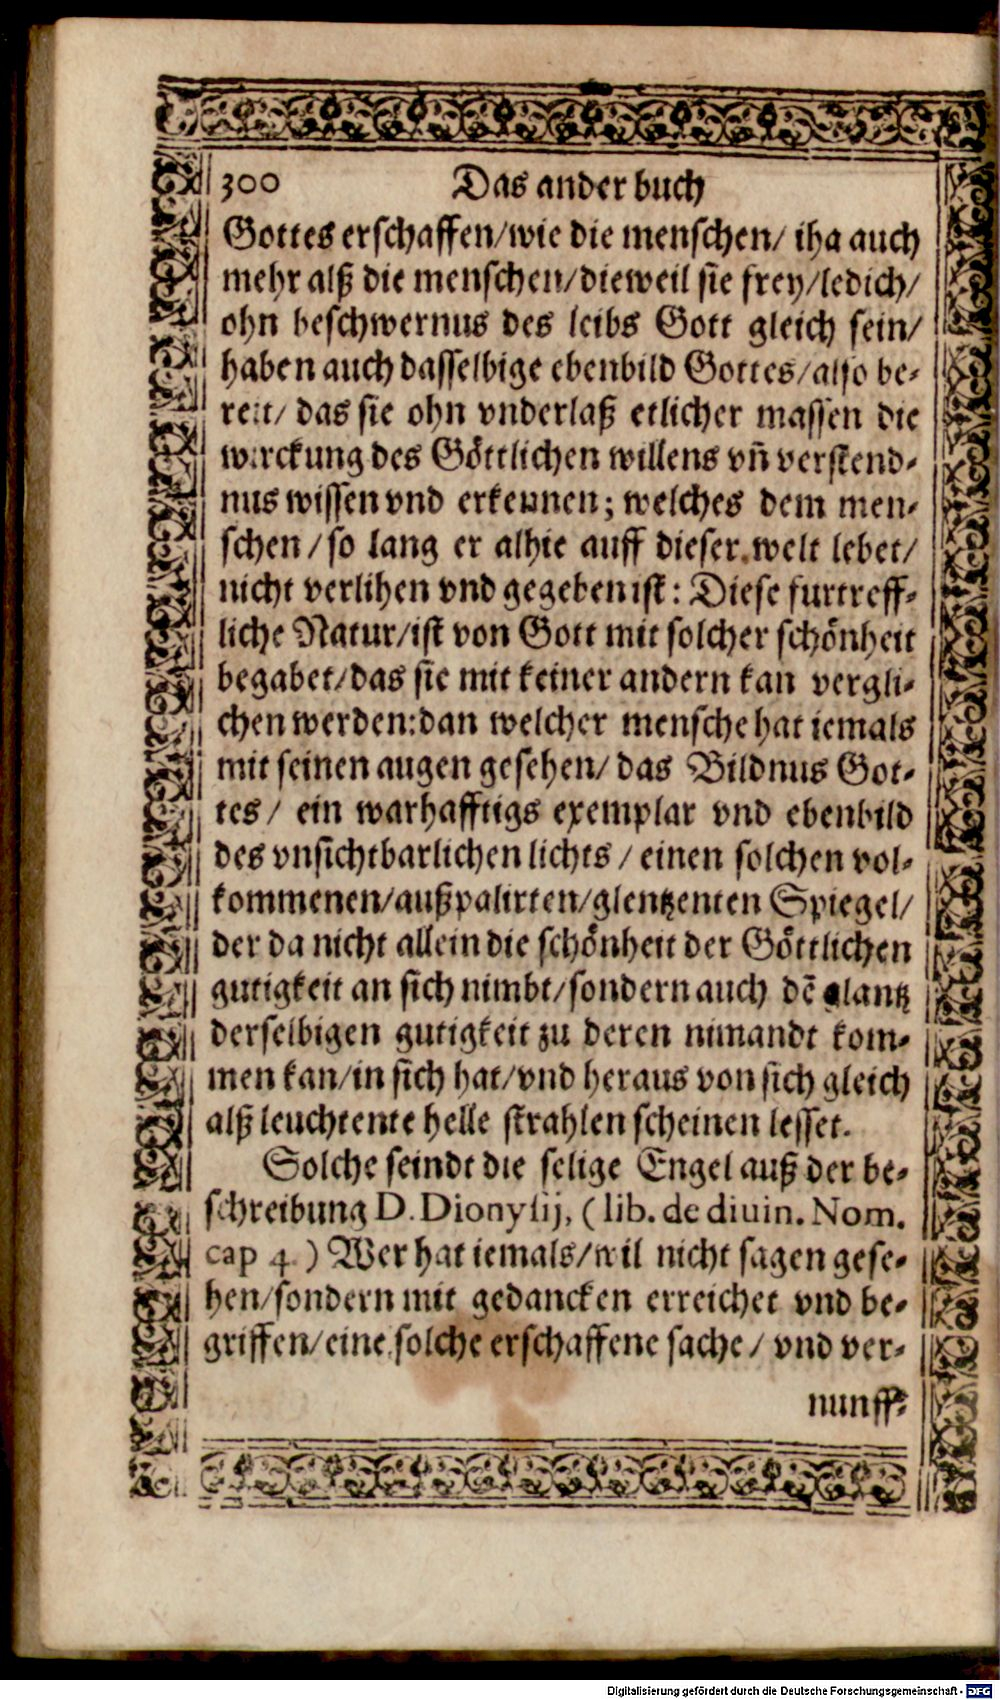 300 Das ander buch
Gottes erschaffen/wie die menschen/ iha auch
mehr alß die menschen/dieweil sie frey/ledich/
ohn beschwernus des leibs Gott gleich sein/
haben auch dasselbige ebenbild Gottes/also be-
reit/ das sie ohn vnderlaß etlicher massen die
wirckung des Göttlichen willens vñ verstend-
nus wissen vnd erkennen; welches dem men-
schen/so lang er alhie auff dieser welt lebet/
nicht verlihen vnd gegeben ist: Diese furtreff-
liche Natur/ist von Gott mit solcher schönheit
begabet/das sie mit keiner andern kan vergli-
chen werden:dan welcher mensche hat iemals
mit seinen augen gesehen/ das Bildnus Got-
tes/ ein warhafftigs exemplar vnd ebenbild
des vnsichtbarlichen lichts/ einen solchen vol-
kommenen/außpalirten/glentzenten Spiegel/
der da nicht allein die schönheit der Göttlichen
gutigkeit an sich nimbt/sondern auch dē glantz
derselbigen gutigkeit zu deren nimandt kom-
men kan/in sich hat/vnd heraus von sich gleich
alß leuchtente helle strahlen scheinen lesset.
Solche seindt die selige Engel auß der be-
schreibung D. Dionysij, (lib. de diuin. Nom.
cap 4.) Wer hat iemals/wil nicht sagen gese-
hen/sondern mit gedancken erreichet vnd be-
griffen/eine solche erschaffene sache/ vnd ver-
nunff-
Digitalisierung gefördert durch die Deutsche Forschungsgemeinschaft - DFG